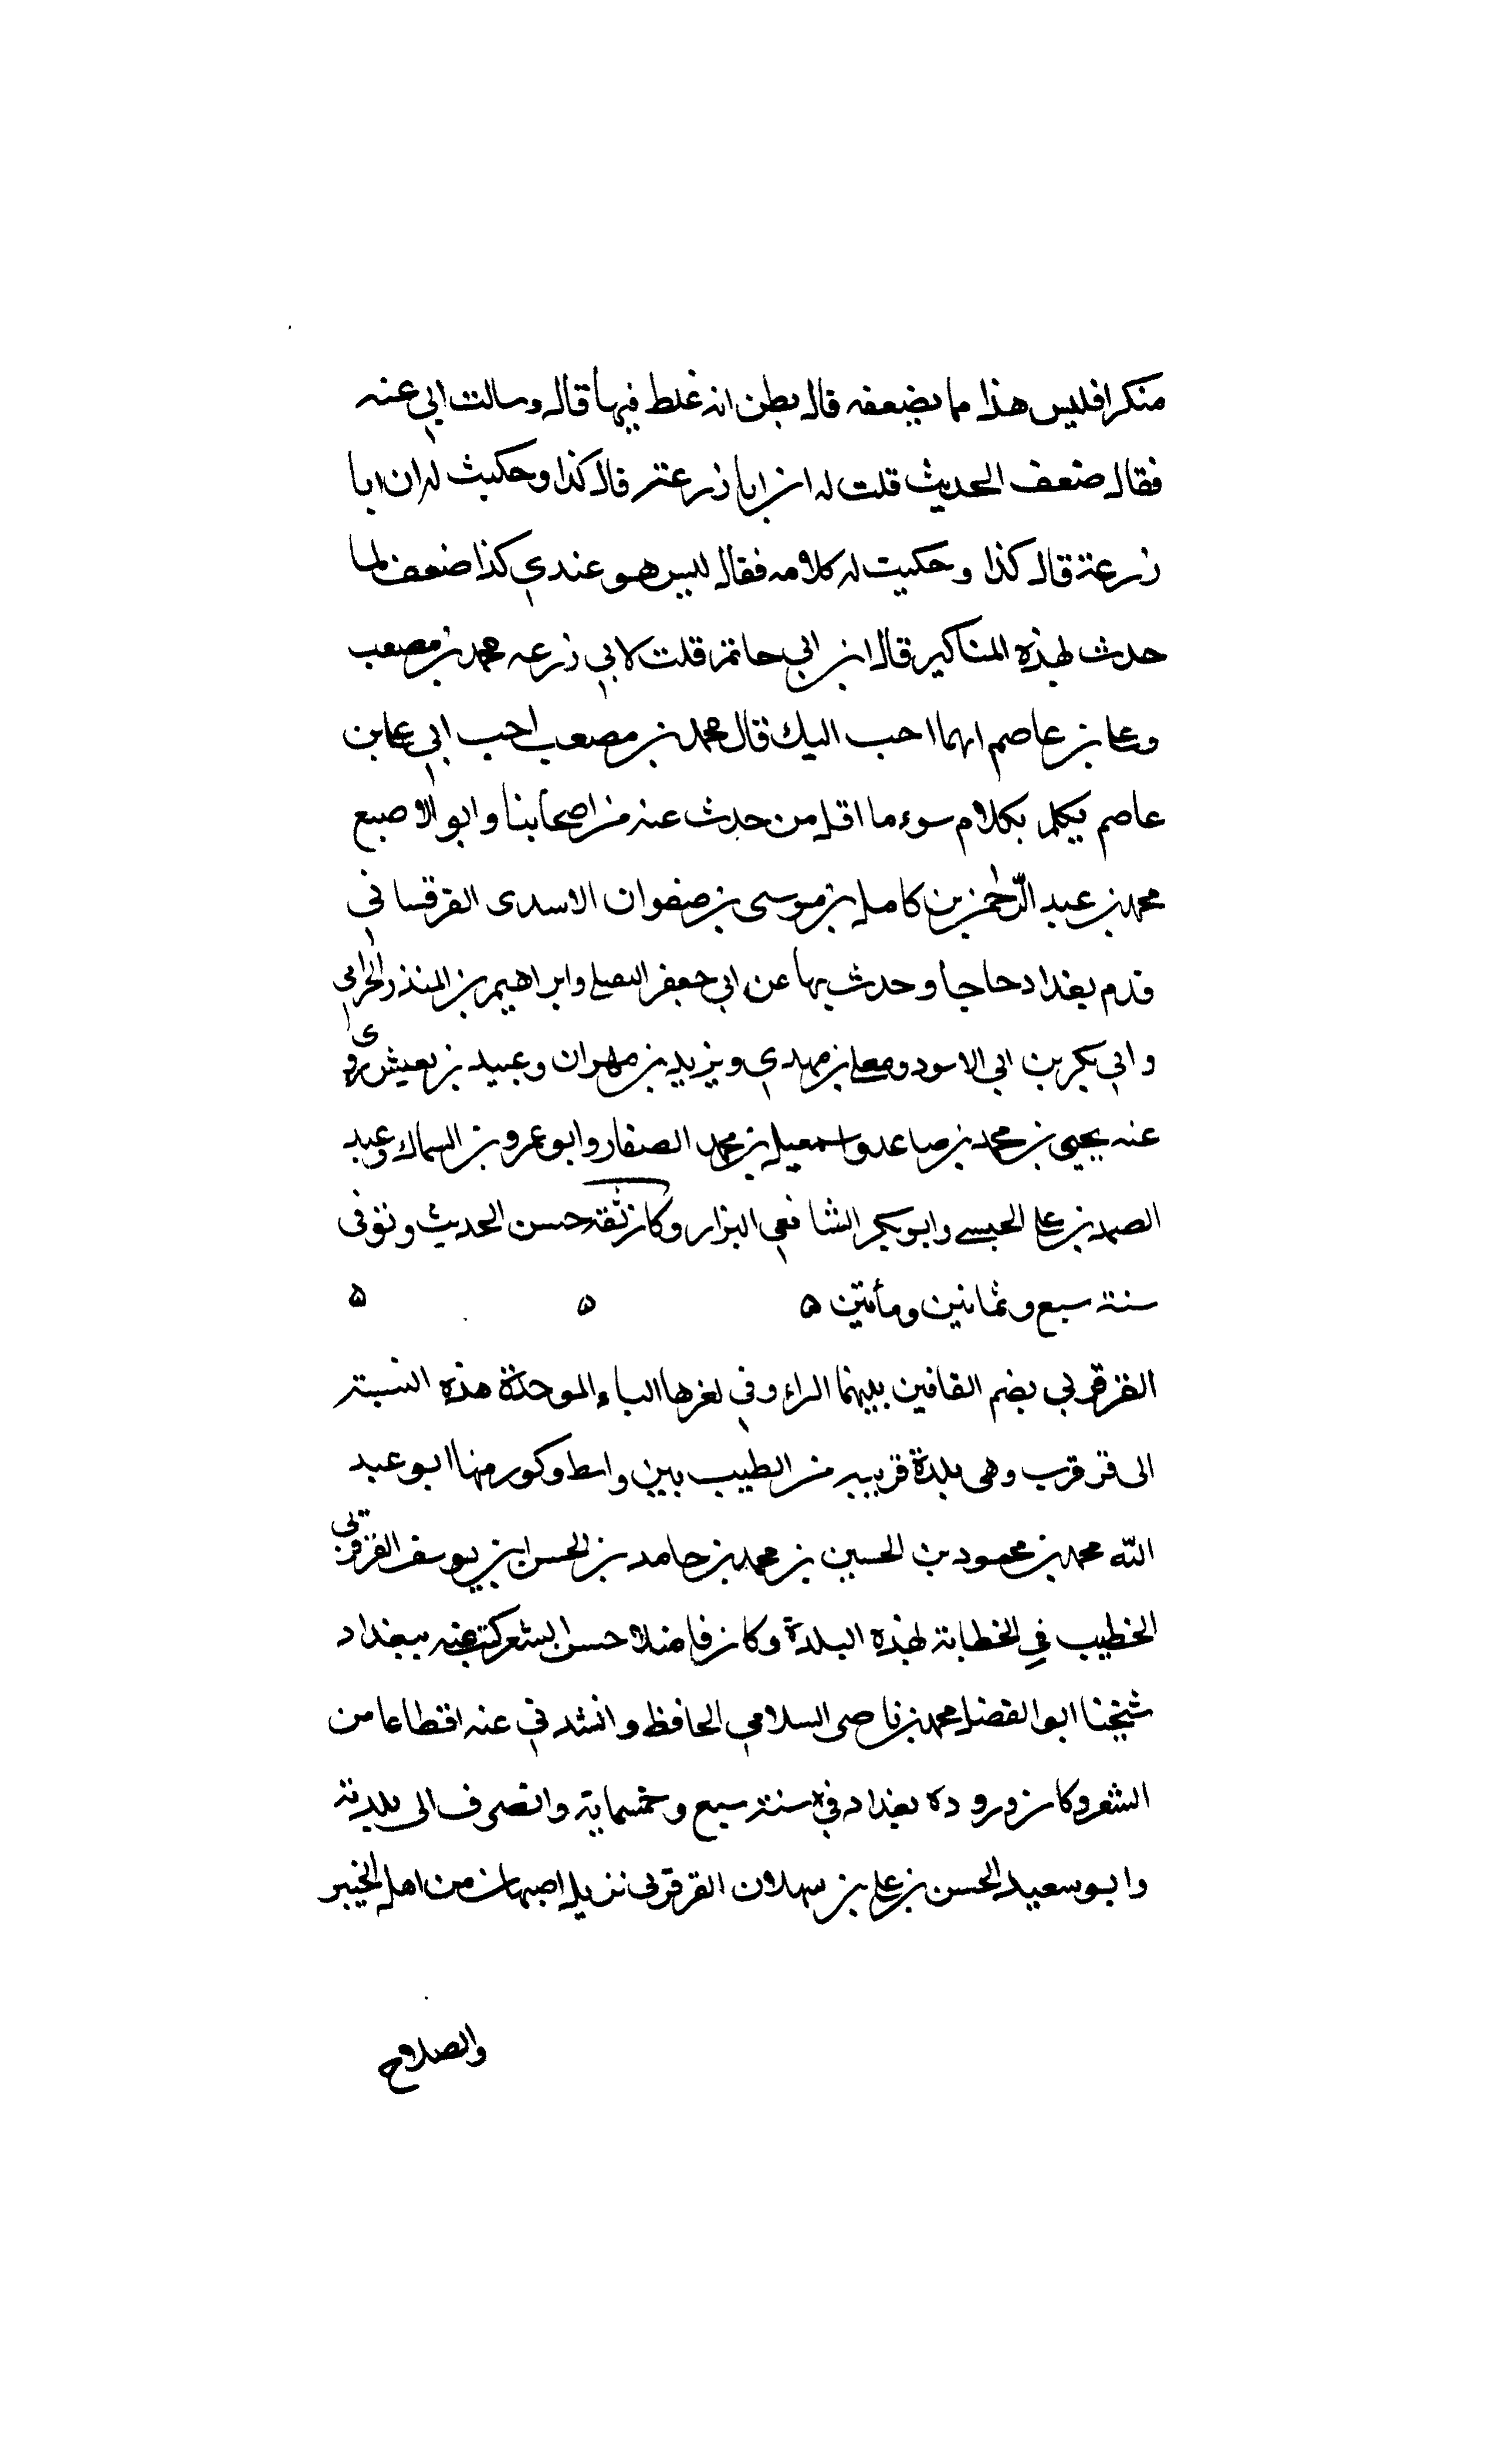 منكرا فليس هذا مما يضعفه قال يظن انه غلط فيها قال وسالت ابي عنه
فقال ضعف الحديث قلت له ان ابا زرعة قال كذا وحكيت له ان ابا
زرعة قال كذا وحكيت له كلامه فقال ليس هو عندي كذا ضعف لما
حدث بهذه المناكير قال ابن ابي حاتم قلت لابي زرعه محمد بن مصعب
وعلي بن عاصم ايهما احب اليك قال محمد بن مصعب احب الي علي بن
عاصم تكلم بكلام سوء ما اقل من حدث عنه من اصحابنا وابو الاصبع
محمد بن عبد الرّحمن بن كامل بن موسى بن صفوان الاسدى القرقساني
قدم بغداد حاجا وحدث بها عن ابي جعفر النفيلي وابراهيم بن المنذر الحزامي
وابي بكر بن ابي الاسود ومعلى بن مهدي ويزيد بن مهران وعبيد بن يعيش روى
عنه يحيى بن محمد بن صاعد واسمعيل بن محمد الصفار وابو عمرو بن السماك وعبد
الصمد بن علي الحبسي وابو بكر الشافعي البزار وكان ثقة حسن الحديث وتوفى
سنة سبع وثمانين ومأتين ۵ ۵ ۵
القرقربي بضم القافين بينهما الراء وفي اخرها الباء الموحدة هذه النسبة
الى قرقرب وهى بلدة قريبه من الطيب بين واسط وكور منها ابو عبد
الله محمد بن محمود بن الحسين بن محمد بن حامد بن الحسن ابن يوسف القرقربي
الخطيب في الخطابة بهذه البلدة وكان فاضلا حسن الشعر كتب عنه ببغداد
شيخنا ابو الفضل محمد بن ناصر السلامي الحافظ وانشدني عنه اقطاعا من
الشعر وكان وروده بغداد في سنة سبع وخمسماية وانصرف الى بلدته
وابو سعيد الحسن بن علي بن سهلان القرقربى نزيل اصبهان من اهل الخير
والصلاح